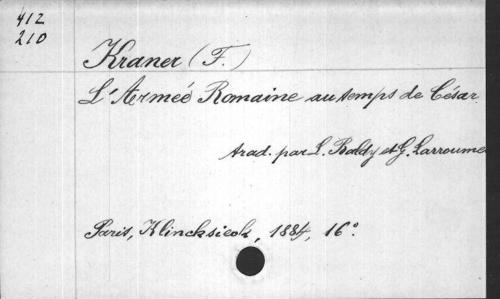 412
210
Kraner (F.)
L'Armée Romaine au temps de César
trad. par L. Baldy et G. Larroume
Paris, Klincksieck, 1884, 16°.